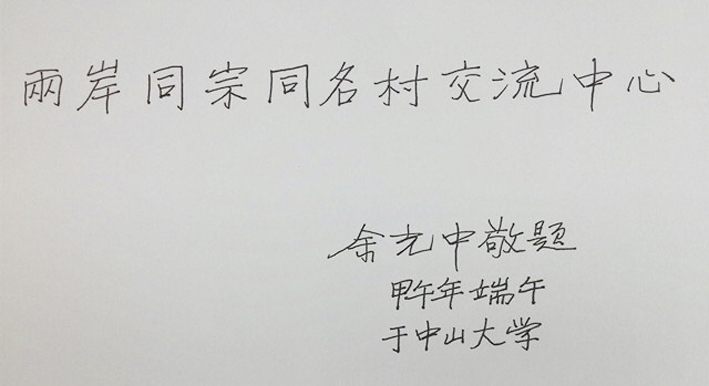 兩岸同宗同名村交流中心
余光中敬題
甲午年端午
于中山大学